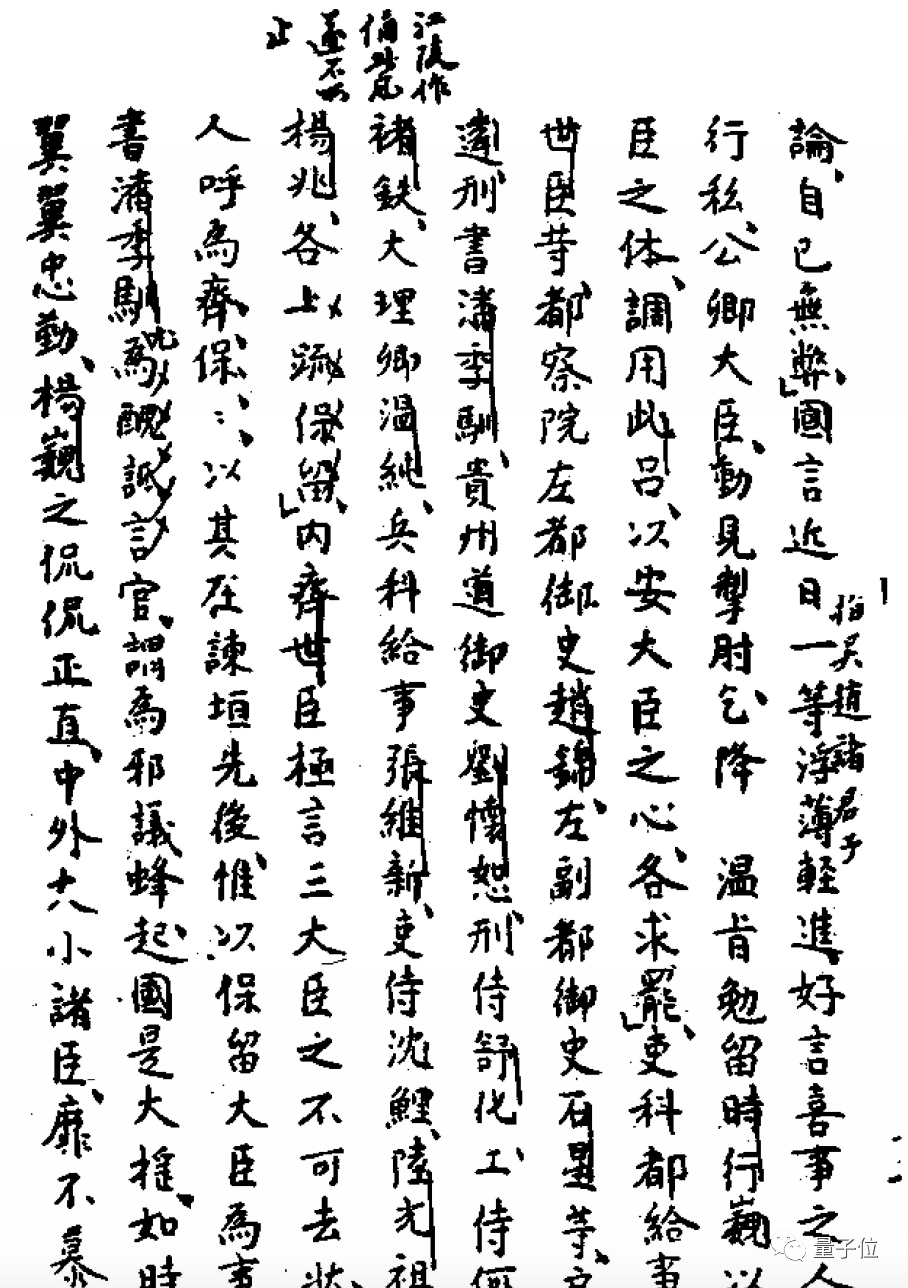 江陵作
俑豈凡
遂不以
止
論自已無弊國言近日一等浮薄輕進好言喜事之人
指吴趙諸君子
行私公卿大臣動見掣肘乞降 温旨勉留時行巍以
臣之体調用此吕以安大臣之心各求罷吏科都給事
世臣䓁都察院左都御史趙錦左副都御史石星䓁
違刑書潘季馴貴州道御史劉懷恕刑侍舒化工侍何
褚鈇大理卿温純兵科給事張維新吏侍沈鯉陸光祖
楊兆各上疏保留内齊世臣極言三大臣之不可去狀
人呼為齊保〻以其在諫垣先後惟以保留大臣為事
書潘季馴為醜詆言官謂為邪議蜂起國是大搖如時
翼翼忠勤楊巍之侃侃正直中外大小諸臣靡不慕
量子位